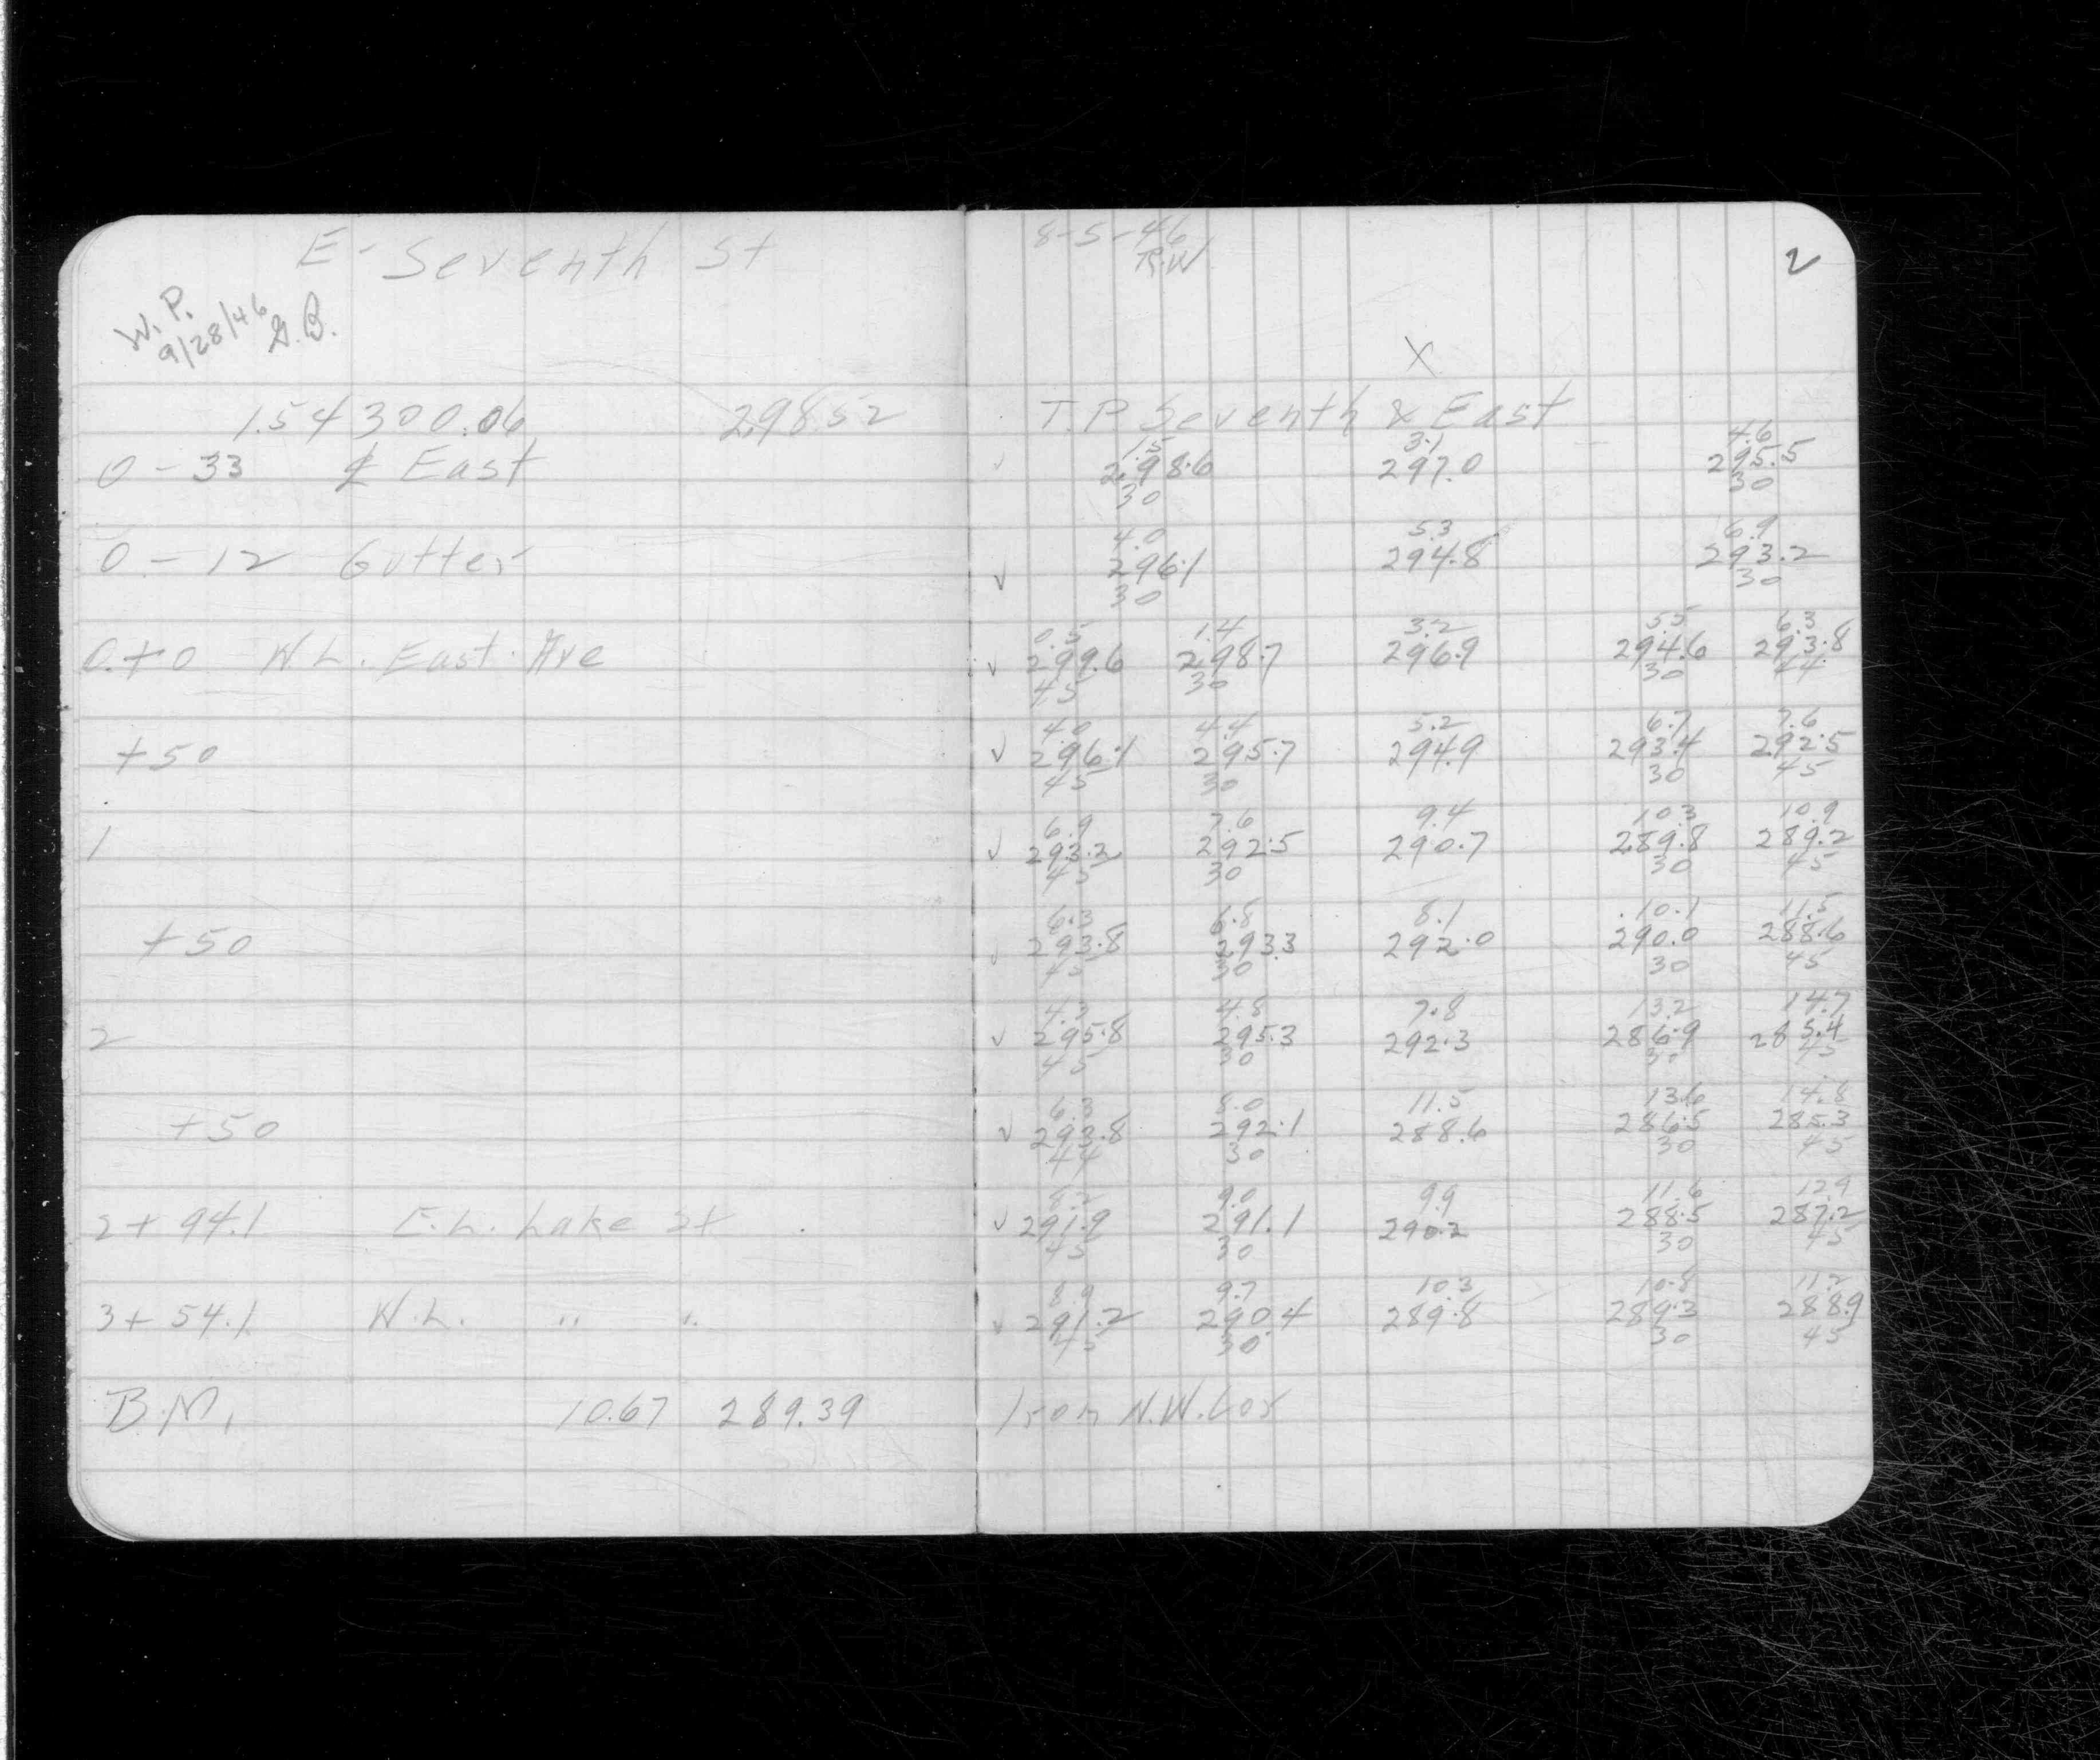 E - Seventh St
W. P.
9/28/46 G.B.
1.54 300.06 298.52
0 - 33 ℄ East
0 - 12 Gutter
0 + 0 W L. East Ave
+ 50
1
+ 50
2
+ 50
2 + 94.1 E. L. Lake St
3 + 54.1 W. L. " "
B.M. 10.67 289.39
8-5-46
R.W
2
X
T.P Seventh & East
1.5 3.1 4.6
√ 298.6 297.0 295.5
30 30
4.0 5.3 6.9
√ 296.1 294.8 293.2
30 30
0.5 1.4 3.2 5.5 6.3
√ 299.6 298.7 296.9 294.6 293.8
45 30 30 44
4.0 4.4 5.2 6.7 7.6
√ 296.1 295.7 294.9 293.4 292.5
45 30 30 45
6.9 7.6 9.4 10.3 10.9
√ 293.2 292.5 290.7 289.8 289.2
45 30 30 45
6.3 6.8 8.1 10.1 11.5
√ 293.8 293.3 292.0 290.0 288.6
45 30 30 45
4.3 4.8 7.8 13.2 14.7
√ 295.8 295.3 292.3 286.9 285.4
45 30 30 45
6.3 8.0 11.5 13.6 14.8
√ 293.8 292.1 288.6 286.5 285.3
44 30 30 45
8.2 9.0 9.9 11.6 12.9
√ 291.9 291.1 290.2 288.5 287.2
45 30 30 45
8.9 9.7 10.3 10.8 11.2
√ 291.2 290.4 289.8 289.3 288.9
45 30 30 45
Iron N.W. Cor